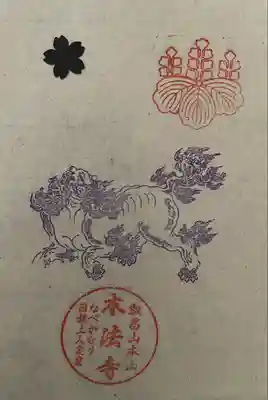 叡昌山本山
本法寺
なべかむり
日親上人